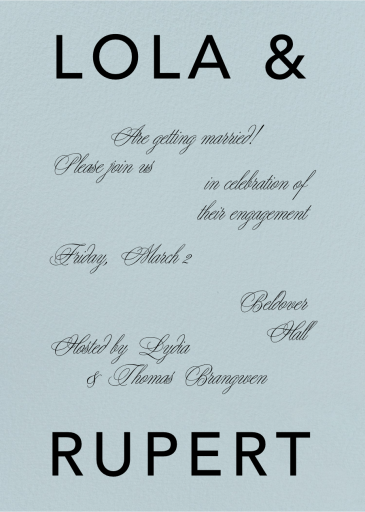 LOLA &
Are getting married!
Please join us
in celebration of
their engagement
Friday, March 2
Beldover
Hall
Hosted by Lydia
& Thomas Brangwen
RUPERT